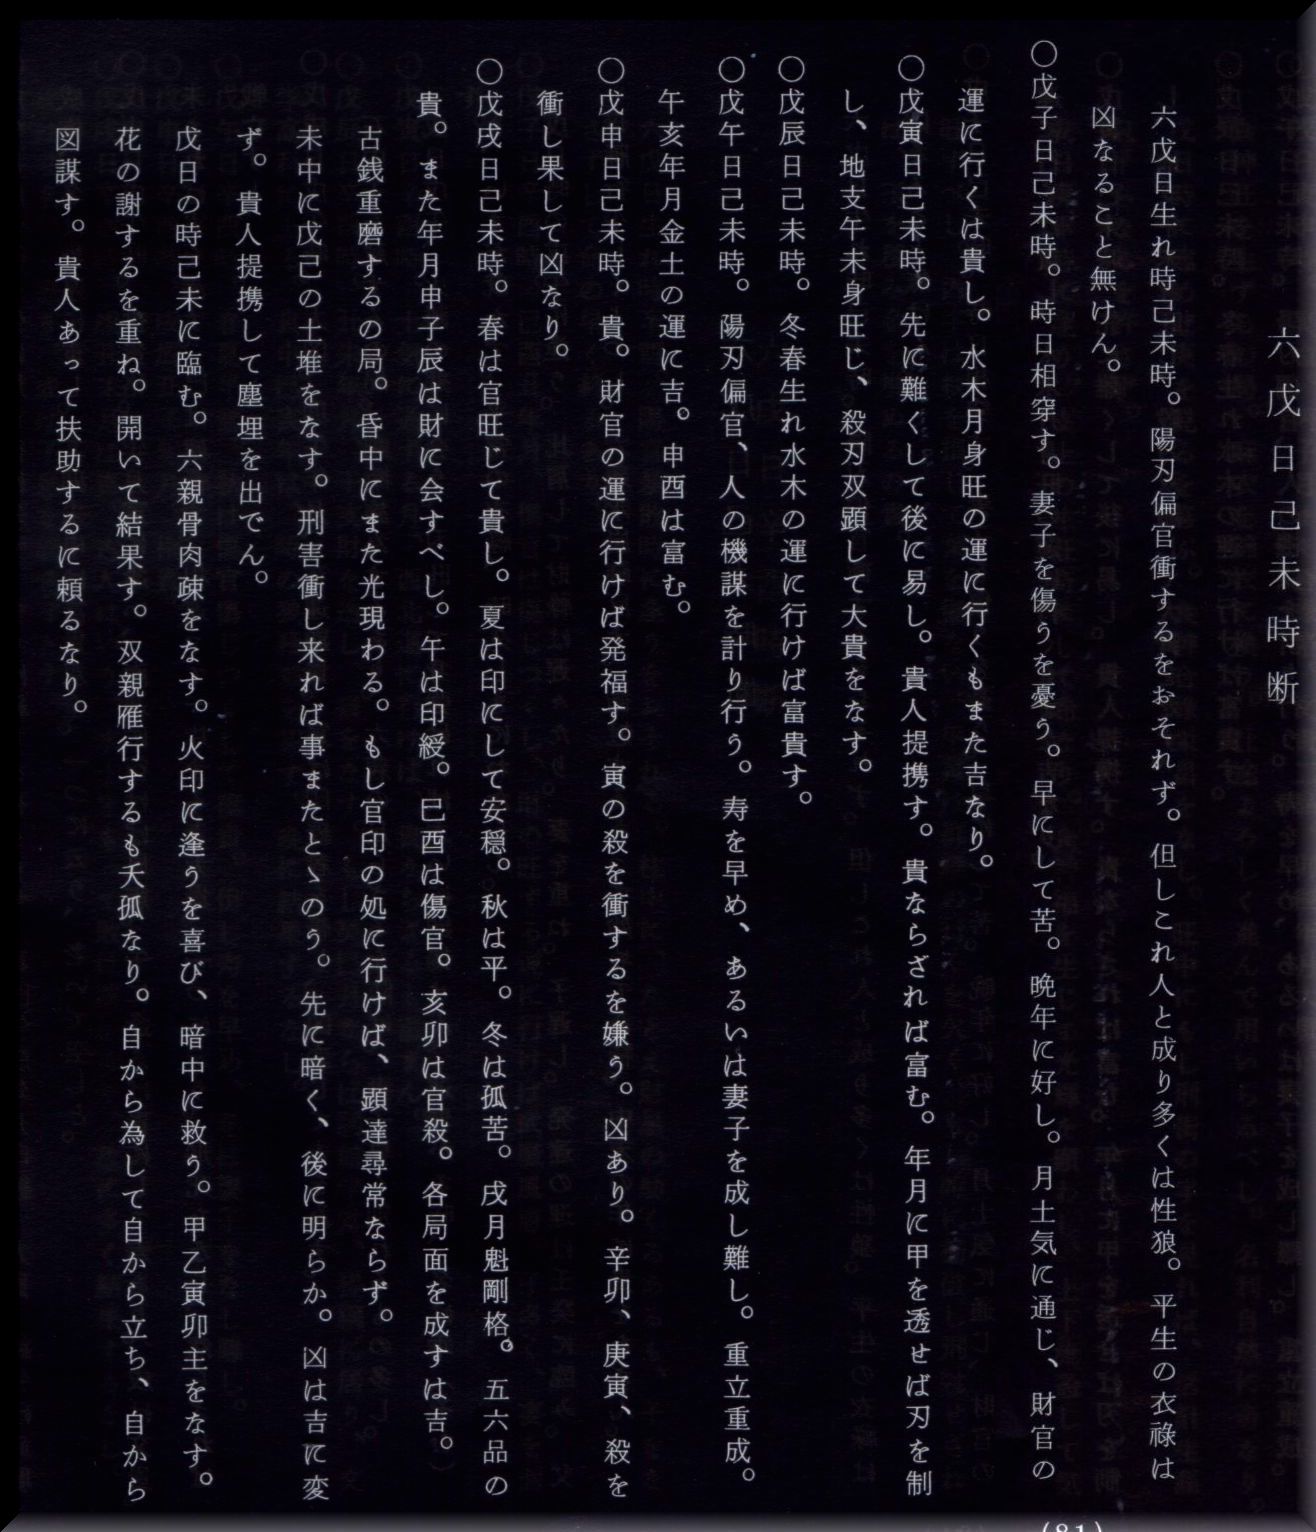 六戊日己未時断
六戊日生れ時己未時。陽刃偏官衝するをおそれず。但しこれ人と成り多くは性狼。平生の衣祿は
凶なること無けん。
〇戊子日己未時。時日相穿す。妻子を傷うを憂う。早にして苦。晩年に好し。月土気に通じ、財官の
運に行くは貴し。水木月身旺の運に行くもまた吉なり。
〇戊寅日己未時。先に難くして後に易し。貴人提携す。貴ならざれば富む。年月に甲を透せば刃を制
し、地支午未身旺じ、殺刃双顕して大貴をなす。
〇戊辰日己未時。冬春生れ水木の運に行けば富貴す。
〇戊午日己未時。陽刃偏官、人の機謀を計り行う。寿を早め、あるいは妻子を成し難し。重立重成。
午亥年月金土の運に吉。申酉は富む。
〇戊申日己未時。貴。財官の運に行けば発福す。寅の殺を衝するを嫌う。凶あり。辛卯、庚寅、殺を
衝し果して凶なり。
〇戊戌日己未時。春は官旺じて貴し。夏は印にして安穏。秋は平。冬は孤苦。戌月魁剛格。五六品の
貴。また年月申子辰は財に会すべし。午は印綬。巳酉は傷官。亥卯は官殺。各局面を成すは吉。
古銭重磨するの局。昏中にまた光現わる。もし官印の処に行けば、顕達尋常ならず。
未中に戊己の土堆をなす。刑害衝し来れば事またとゝのう。先に暗く、後に明らか。凶は吉に変
ず。貴人提携して塵埋を出でん。
戊日の時己未に臨む。六親骨肉疎をなす。火印に逢うを喜び、暗中に救う。甲乙寅卯主をなす。
花の謝するを重ね。開いて結果す。双親雁行するも夭孤なり。自から為して自から立ち、自から
図謀す。貴人あって扶助するに頼るなり。
(81)